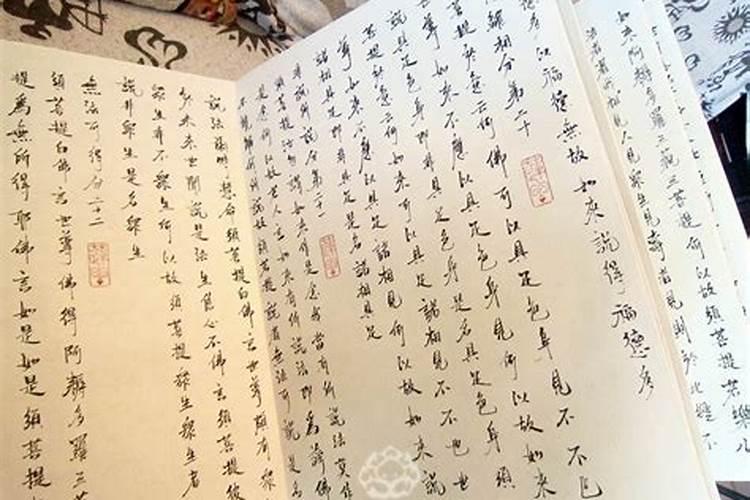 如來阿耨多羅三藐三菩提何以故須菩提若樂小
見人見眾生見壽者見則於此經不
以福德無故如來說得福德多
離相分第二十
菩提於意云何佛可以具足色身見不不也
尊如來不應以具足色身見何以故如來
說具足色身即非具足色身是名具足色身須
菩提於意云何如來可以具足諸相見不不也世
尊如來不應以具足諸相見何以故如來說
諸相具足即非具足是名諸相具足
非說所說分第二十一
須菩提汝勿謂如來作是念我當有所說法莫作
是念何以故若人言如來有所說法即為謗佛
不能解我所說故須菩提說法者無法可說是名
說法爾時慧命須菩提白佛言世尊頗有眾
於未來世聞說是法生信心不佛言須菩提彼
眾生非不眾生何以故須菩提眾生眾生者
說非眾生是名眾生
無法可得分二十二
須菩提白佛言世尊佛得阿耨多羅三
提為無所得耶佛言如是如是須菩提